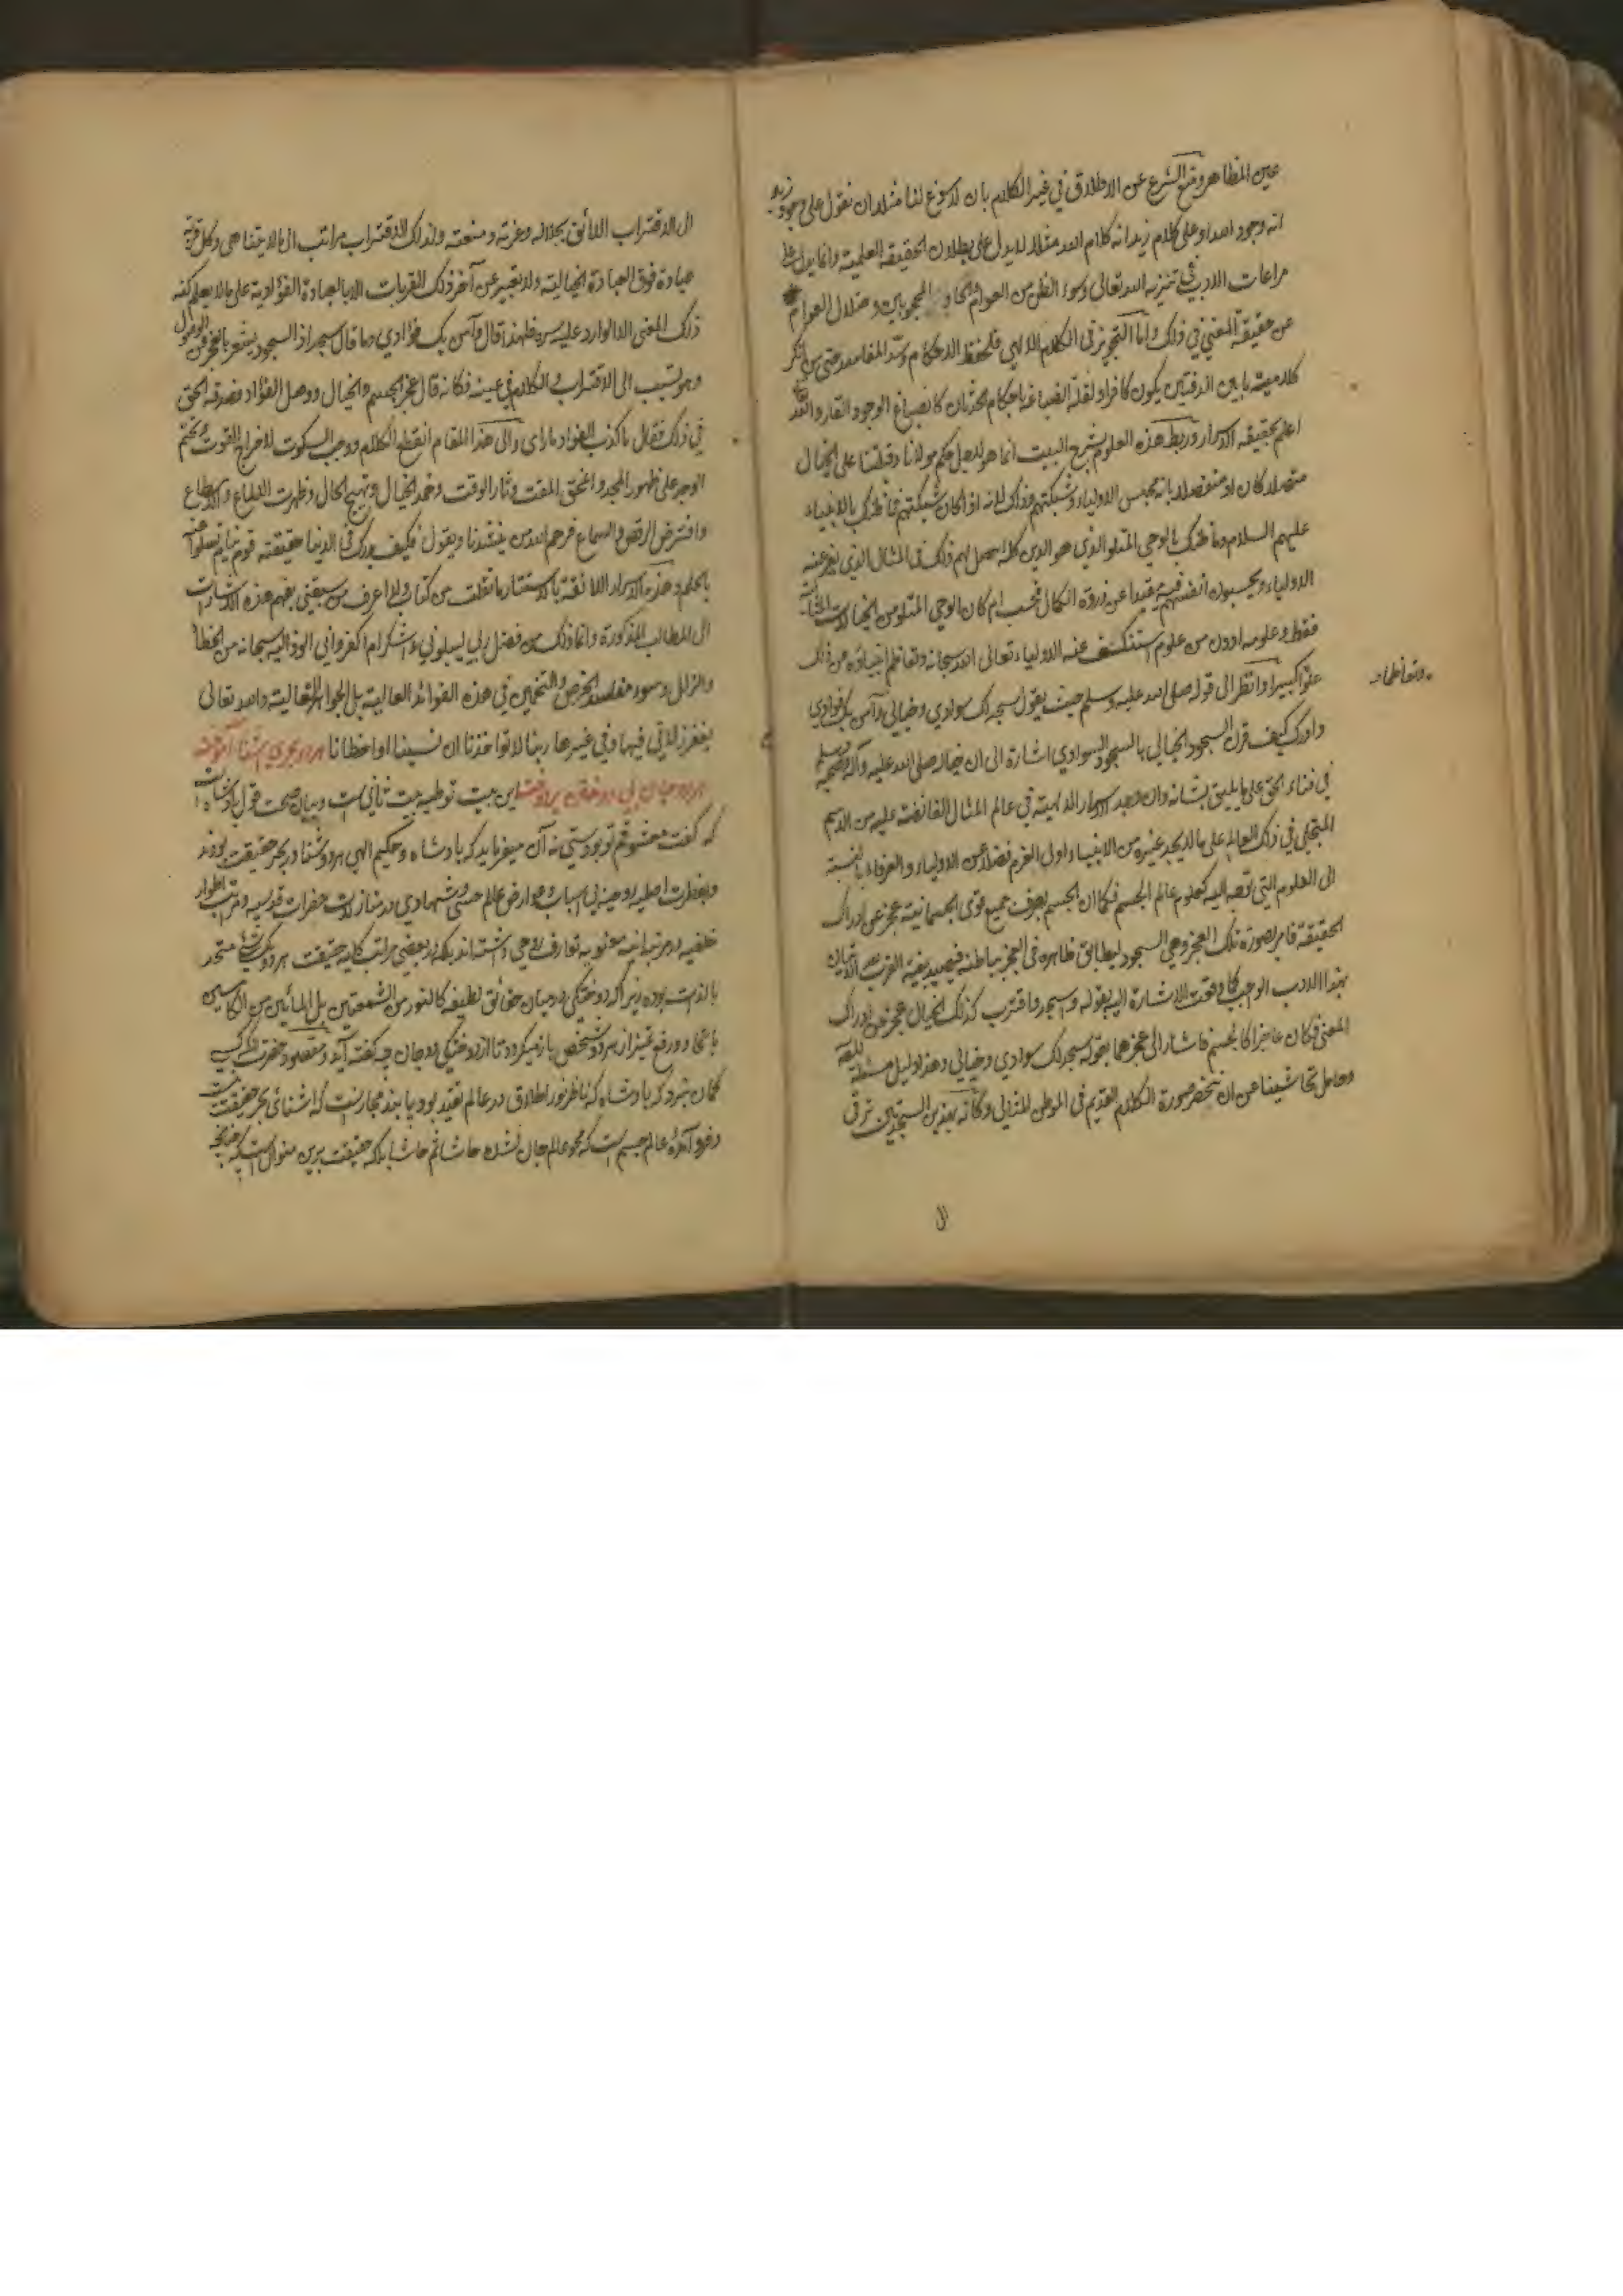 عين المظاهر ومنع الشرع عن الاطلاق في غير الكلام بان لا يسوغ لنا مثلا ان نقول على وجود زيد
انه وجود الله او على كلام زيد انه كلام الله مثلا لا يدل على بطلان الحقيقة العلمية وانما يدل على
مراعات الادب في تنزيه الله تعالى وسوء الظن من العوام المحجوبين وضلال العوام
عن حقيقة المعنى في ذلك واما التجويز في الكلام الالهي فلحفظ الاحكام وسد المفاسد حتى من انكر
كلاميته ما بين الدفتين يكون كافرا ولقلة انصباغه باحكام الحدثان كانصباغ الوجود القار والله
اعلم بحقيقة الاسرار وربط هذه العلوم بشرح البيت انما هو لاجل حكم مولانا وقبلتنا على الخيال
متصلا كان او منفصلا بانه محبس الاولياء وشبكتهم وذلك لانه اذا كان شبكتهم فما ظنك بالانبياء
عليهم السلام وما ظنك بالوحي المتلو الذي هو الدين كله احصل لهم ذلك في المثال الذي يفر عنه
الاولياء ويحسبون انفسهم فيه مقيدا عن ذروة الكمال فحسب ام كان الوحي المتلو من الخيالات المثالية
فقط وعلومه ادون من علوم استنكشف عنه الاولياء تعالى الله سبحانه وتعاظم انبياؤه عن ذلك
علوا كبيرا وانظر الى قوله صلى الله عليه وسلم حيث يقول سجد لك سوادي وخيالي وآمن بك فؤادي
وادرك كيف قرن السجود الخيالي بالسجود السوادي اشارة الى ان خياله صلى الله عليه وآله وصحبه وسلم
في فناء الحق على ما يليق بشانه وان وجد الاسرار الالهية في عالم المثال الفائضة عليه من الاسم
المتجلي في ذلك العالم على ما لا يجد غيره من الانبياء اولي العزم فضلا عن الاولياء والعرفاء بالنسبة
الى العلوم التي توجه اليه كعلوم عالم الجسم فكما ان الجسم بصرف جميع قوى الجسمانية عجز عن ادراك
الحقيقة فامر بصورة تلك العجز وهي السجود ليطابق ظاهره في العجز بباطنه فيصيد بغية القرب الاتيان
بهذا الادب الواجب كما وقعت الاشارة اليه بقوله واسجد واقترب كذلك الخيال عجز عن ادراك
المعنى فكان عاجزا كالجسم فاشار الى عجزهما بقوله سجد لك سوادي وخيالي وهذا دليل
وحامل تحاشينا عن ان تنحصر صورة الكلام القديم في الموطن المثالي وكانه بهذين السجدتين ترقى
الى
وتعاظم
الى الاقتراب اللائق بجلاله وعزته ومنعته ولذلك الاقتراب مراتب الى ما لا يتناهى وكل قربة
عبادة فوق العبادة الخيالية ولا يعبر عن آخر ذلك القربات الا بالعبادة الفؤادية على ما لا يعلم كنه
ذلك المعنى الا الوارد عليه سره فلهذا قال وآمن بك فؤادي وما قال سجد اذ السجود يشعر بالعجز عن الوصول
وهو تسبب الى الاقتراب والكلام في عينه فكانه قال عجز الجسم والخيال ووصل الفؤاد فصدقه الحق
في ذلك فقال ما كذب الفؤاد ما راى والى هذا المقام انقطع الكلام ووجب السكوت لاخراج القوت
الوجد على ظهور المجد وانمحق المقت وثار الوقت وخمد الخيال وتهيج الحال وظهرت
وافترض الرقص والسماع فرحم الله من ينشدنا ويقول فكيف يدرك في الدنيا حقيقته قوم نيام تسلوا عنه
بالحلم وهذه الاسرار اللائقة بالاستتار ما نقلت من كتاب ولا اعرف من سبقني بفهم هذه الاشارات
الى المطالب المذكورة وانما ذلك من فضل ربي ليبلوني ءاشكر ام اكفر واني الوذ اليه سبحانه من الخطا
والزلل وسوء مفاسد الخرص والتخمين في هذه الفوائد العالية بل الجواهر المتعالية والله تعالى
يغفر زلاتي فيها وفي غيرها ربنا لا تواخذنا ان نسينا او اخطانا هر دو بحري آشنا آموخته
هر دو جان بي دوختن بر دوخته اين بيت توطيه بيت ثاني است وبيان صحت قول پادشاه است
كه گفت معشوقم تو بودستي نه آن ميفرمايد كه پادشاه وحكيم الهي هر دو آشنا در بحر حقيقت بودند
وبفطرت اصليه روحيه بي اسباب وعوارض عالم حسي وشهادي در منازلات حضرات قدسيه ومراتب اطوار
خلقيه در مرتبه معنويه تعارف روحي داشته اند بلكه در بعضي مراتب كليه حقيقت هر دو يك شئ متحد
بالذات بوده زيرا كه دوختگي در ميان حقائق لطيفه كالنور من الشمعتين بل المائين من الكاسين
باتحاد ورفع تميز از هر دو شخص باز ميگردد تا از دوختگي دو جان چه گفته آيد ومقصود حضرت
گمان نبرد كه پادشاه كه ناظر نور اطلاق در عالم تقيد بود پابند مجاز نيست كه آشنائي بحر حقيقت
وفرو آمده عالم جسم است كه محو عالم جان نشده حاشا ثم حاشا بلكه حقيقت برين منوال است كه چنانچه